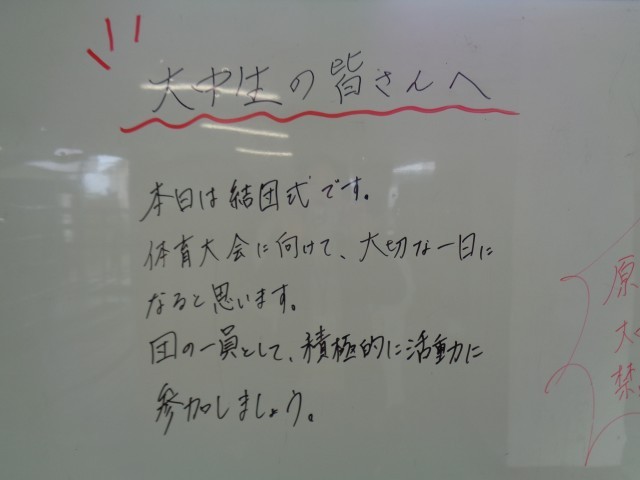 大中生の皆さんへ
本日は結団式です。
体育大会に向けて、大切な一日に
なると思います。
団の一員として、積極的に活動に
参加しましょう。
原
大
禁